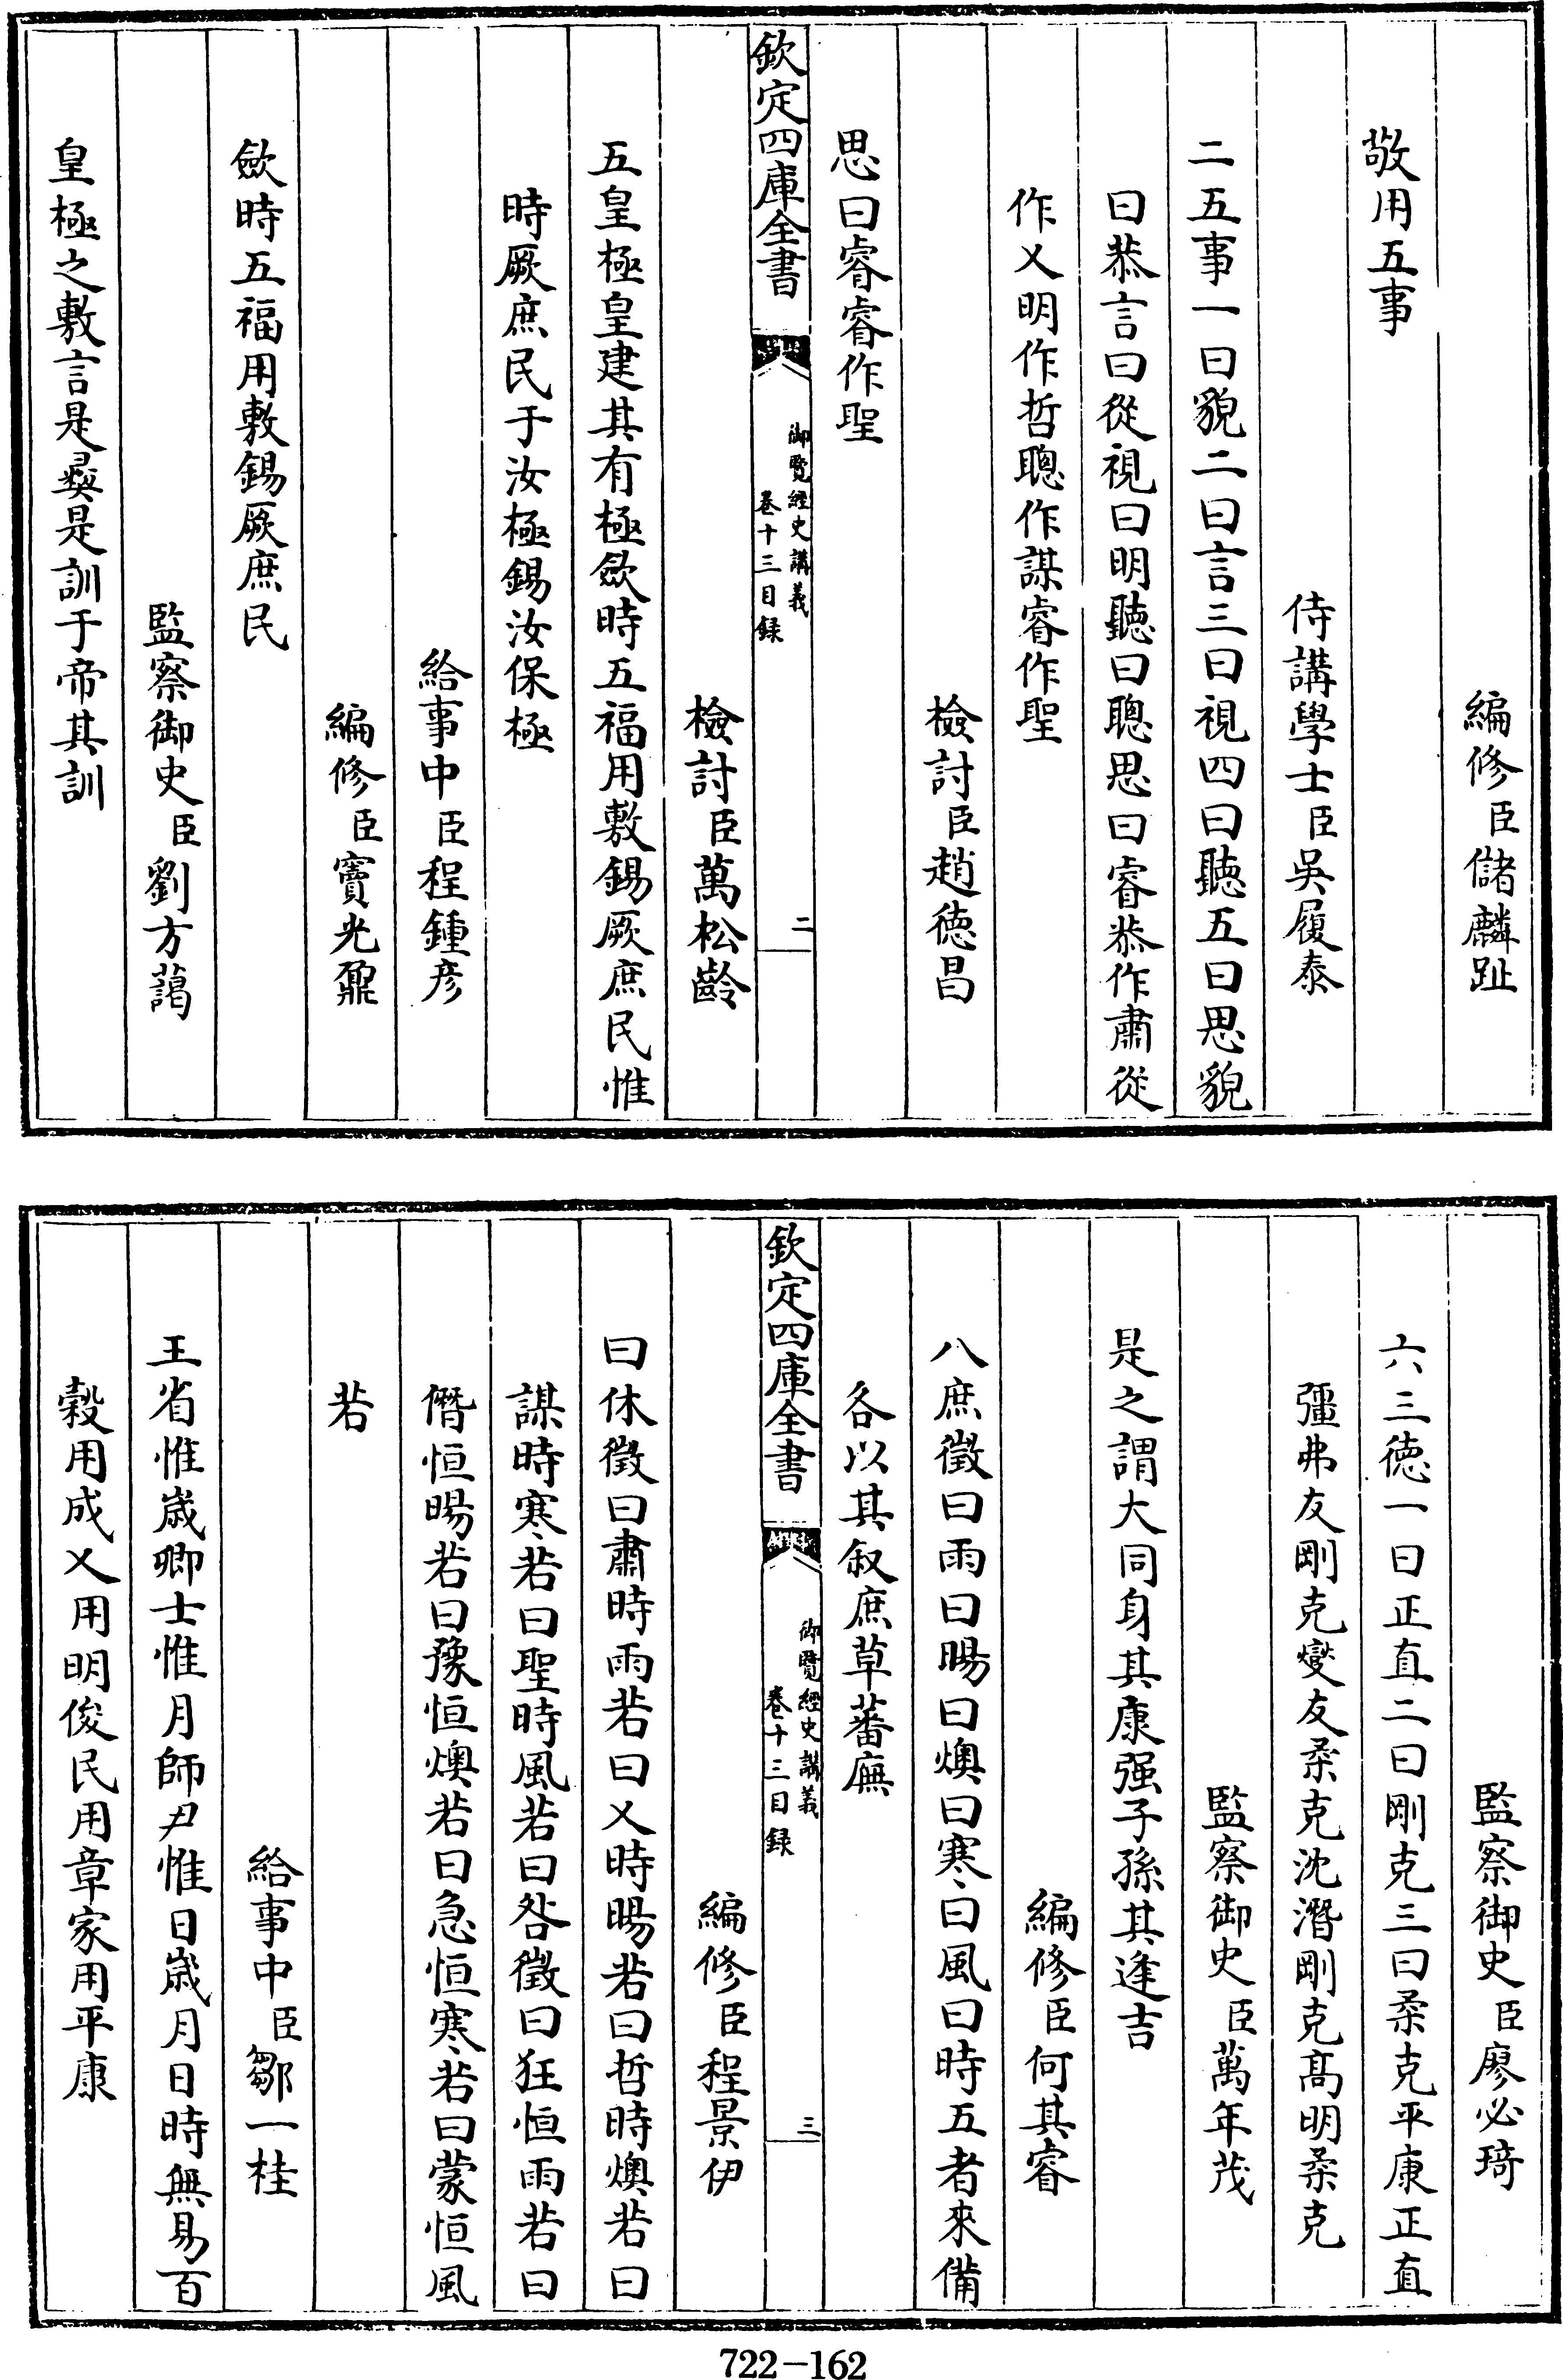 編修臣儲麟趾
敬用五事
侍講學士臣吳履泰
二五事一曰貌二曰言三曰視四曰聽五曰思貌
曰恭言曰從視曰明聽曰聰思曰睿恭作肅從
作乂明作哲聰作謀睿作聖
檢討臣趙徳昌
思曰睿睿作聖
欽定四庫全書
御覽經史講義
卷十三目録
二
檢討臣萬松齡
五皇極皇建其有極斂時五福用敷錫厥庶民惟
時厥庶民于汝極錫汝保極
給事中臣程鍾彦
編修臣竇光鼐
斂時五福用敷錫厥庶民
監察御史臣劉方藹
皇極之敷言是彛是訓于帝其訓
監察御史臣廖必琦
六三徳一曰正直二曰剛克三曰柔克平康正直
彊弗友剛克燮友柔克沈潛剛克髙明柔克
監察御史臣萬年茂
是之謂大同身其康强子孫其逢吉
編修臣何其睿
八庶徵曰雨曰暘曰燠曰寒曰風曰時五者來備
各以其叙庶草蕃廡
欽定四庫全書
御覽經史講義
卷十三目録
三
編修臣程景伊
曰休徵曰肅時雨若曰乂時暘若曰哲時燠若曰
謀時寒若曰聖時風若曰咎徵曰狂恒雨若曰
僭恒暘若曰豫恒燠若曰急恒寒若曰蒙恒風
若
給事中臣鄒一桂
王省惟歲卿士惟月師尹惟日歲月日時無易百
穀用成乂用明俊民用章家用平康
722-162